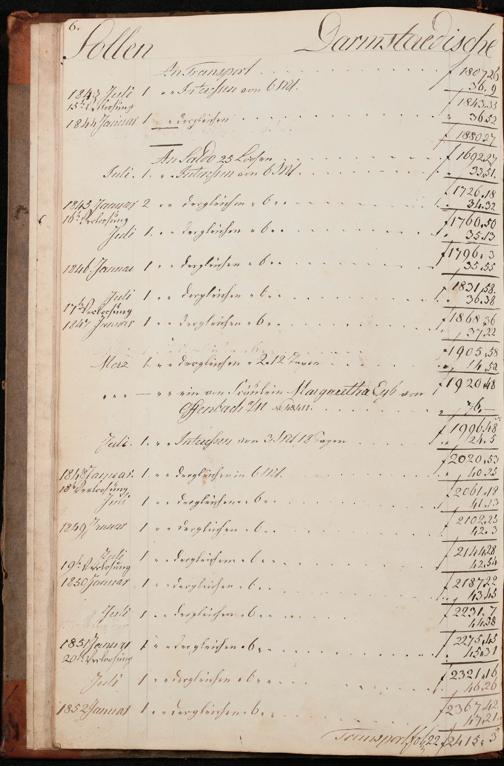 6.
Sollen Darmstaedische
An Transport f 1807.26
1843 Juli 1 Intressen von 6 Mt. 36.9
15te Verloosung f 1843.35
1844 Januar 1 dergleichen 36.52
f 1880.27
An Saldo 25 Loosen f 1692.27
Juli 1 Intressen von 6 Mt 33.51
f 1726.18
1845 Januar 2 dergleichen 6 34.32
16te Verloosung f 1760.50
Juli 1 dergleichen 6 35.13
f 1796.3
1846 Januar 1 dergleichen 6 35.55
f 1831.58
Juli 1 dergleichen 6 36.38
17te Verloosung f 1868.36
1847 Januar 1 dergleichen 6 37.22
f 1905.58
Merz 1 dergleichen 2.12 Tagen 14.50
f 1920.48
von Fräulein Margaretha Eyß von
Offenbach 76.—
f 1996.48
Juli 1 Intressen von 3 Mt 18 Tagen 24.5
f 2020.53
1848 Januar 1 dergleichen 6 Mt. 40.25
18te Verloosung f 2061.18
Juli 1 dergleichen 6 41.13
f 2102.25
1849 Januar 1 dergleichen 6 42.3
f 2144.28
Juli 1 dergleichen 6 42.54
19te Verloosung f 2187.22
1850 Januar 1 dergleichen 6 43.45
f 2231.7
Juli 1 dergleichen 6 44.38
f 2275.45
1851 Januar 1 dergleichen 6 45.31
20te Verloosung f 2321.16
Juli 1 dergleichen 6 46.26
f 2367.42
1852 Januar 1 dergleichen 6 47.21
Transport f 2415.3